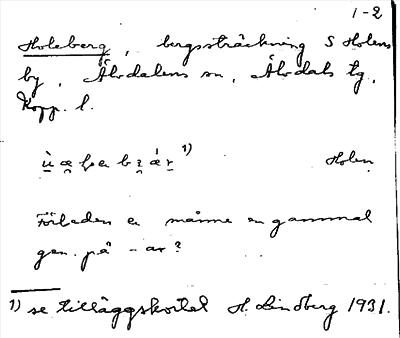 1-2
Holeberg, bergssträckning S Holens
by, Älvdalens sn, Älvdals tg,
Kopp. l.
Holen
Förleden är månne en gammal
gen. på -ar?
1) se tilläggskortet H. Lindberg 1931.